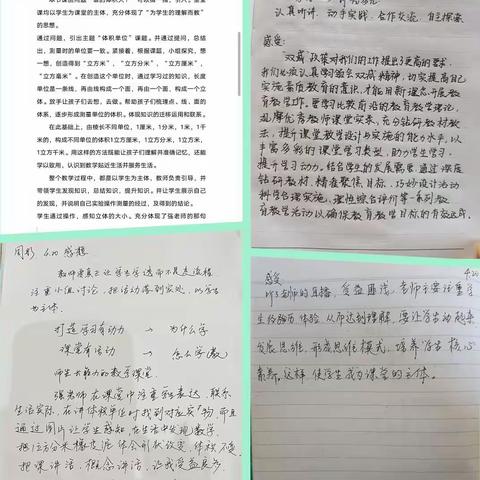 课均以学生为课堂的主体，充分体现了“为学生的理解而教”
的思想。
通过问题，引出主题“体积单位”课题。并通过提问，总结
出，测量时的单位要一致。紧接着，根据课题，小组探究，想
一想，创造得到“立方米”，“立方分米”，“立方厘米”，
“立方毫米”。在创造这个单位时，通过学习过的知识，长度
单位是一条线，再由线构成一个面，再由一个面，构成一个立
体。放手让孩子们去想，去做。帮助孩子们梳理点、线、面的
体系，逐步形成测量单位的体积。体现知识的迁移运用和联系。
在此基础上，由棱长不同单位，1厘米，1分米，1米，1千
米的，构成不同单位的体积1立方厘米，1立方分米，1立方米，
1立方千米。用这样的方法既能让孩子们理解并准确记忆，还能
学以致用，认识到数学贴近生活并服务生活。
整个教学过程中，都是以学生为主体，教师负责引导，并
带领学生发现知识，总结知识，提升知识。并让学生展示自己
的发现，并说明自己实验操作测量的经过，及得到的结论。
学生通过操作，感知立体的大小。充分体现了张老师的那句
认真听讲、动手实践、合作交流、自主探索
感受：
“双减”政策对我们的工作提出了更高的要求，
我们必须认真学习领会双减精神，切实提高自己
实施素质教育的意识，才能用新理念开展教
育教学工作。要学习比较前沿的教育教学理论，
观摩优秀教师课堂实录，充分钻研教材教
法，提升课堂教学设计与实施的能力水平，以
丰富多彩的课堂学习类型，助力学生学习，
提升学习动力。结合学生的发展需要，通过深度
钻研教材，精准聚焦目标，巧妙设计活动
科学合理实施，理性综合评价等一系列教
育教学活动以确保教育教学目标的有效达成。
4.20 感想
教师考虑让学生学透而不是走过场
注重小组讨论，把活动落到实处，以学生
为主体。
打造学习有动力 → 为什么学
课堂有活动 → 怎么学(教)
师生共能力的数学课堂
张老师在课堂中注重的表达，联系
生活实际，在讲体积单位时找到对应实物，而且
通过图片让学生感知，在生活中发现数学，
把1立方分米橡皮泥 体会形状改变，体积不变，
把课讲活，概念讲活，让我受益良多。
感受 4.20
听了老师的直播，受益匪浅，老师主要注重学
生经验历体验，从而达到理解，要让学生动起来
发展思维，形成思维模式，培养学生核心
素养，这样，使学生成为课堂的主体。